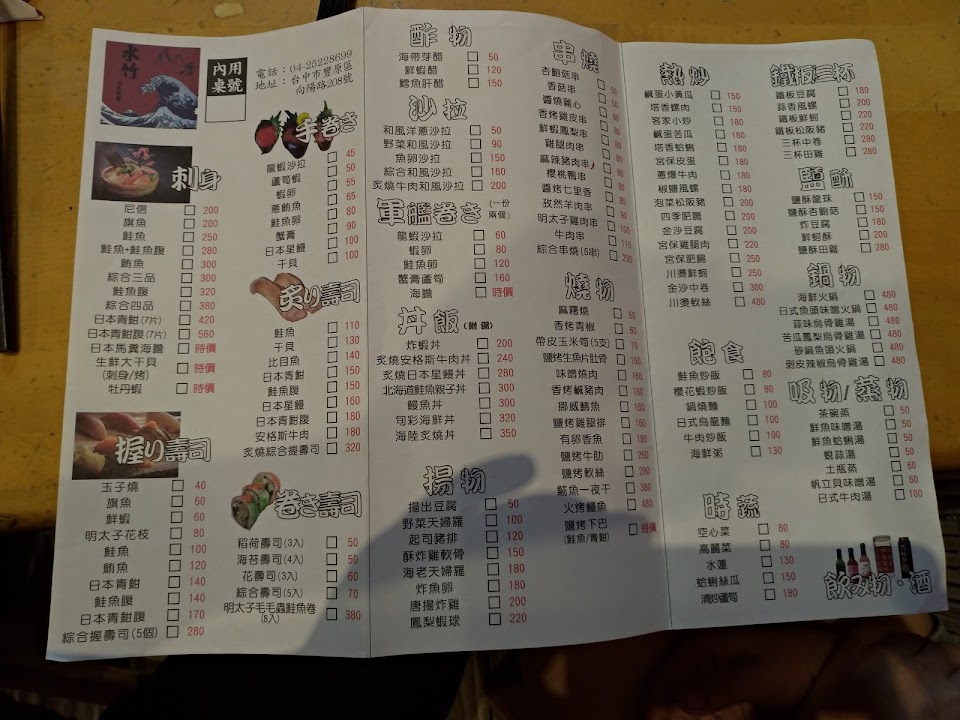 水竹
代乃芳
內用
桌號
電話：04-25228699
地址：台中市豐原區
向陽路208號
刺身
尼信 200
旗魚 200
鮭魚 250
鮭魚+鮭魚腹 280
鮪魚 300
綜合三品 300
鮭魚腹 320
綜合四品 380
日本青魽(7片) 420
日本青魽腹(7片) 560
日本馬糞海膽 時價
生鮮大干貝
(刺身/烤) 時價
牡丹蝦 時價
握り壽司
玉子燒 40
旗魚 60
鮮蝦 60
明太子花枝 80
鮭魚 100
鮪魚 120
日本青魽 140
鮭魚腹 140
日本青魽腹 170
綜合握壽司(5個) 280
手卷き
龍蝦沙拉 45
蘆筍蝦 50
蝦卵 55
蔥鮪魚 65
鮭魚卵 80
蟹膏 90
日本星鰻 100
干貝 100
炙り壽司
鮭魚 110
干貝 130
比目魚 140
日本青魽 150
鮭魚腹 150
日本星鰻 160
日本青魽腹 180
安格斯牛肉 180
炙燒綜合握壽司 320
卷き壽司
稻荷壽司(3入) 50
海苔壽司(4入) 50
花壽司(3入) 60
綜合壽司(5入) 70
明太子毛毛蟲鮭魚卷
(8入) 380
酢物
海帶芽醋 50
鮮蝦醋 120
鱈魚肝醋 150
沙拉
和風洋蔥沙拉 50
野菜和風沙拉 90
魚卵沙拉 150
綜合和風沙拉 160
炙燒牛肉和風沙拉 200
軍艦卷き(一份兩個)
龍蝦沙拉 60
蝦卵 80
鮭魚卵 120
蟹膏蘆筍 160
海膽 時價
丼飯(附湯)
炸蝦丼 200
炙燒安格斯牛肉丼 240
炙燒日本星鰻丼 280
北海道鮭魚親子丼 300
鰻魚丼 300
旬彩海鮮丼 320
海陸炙燒丼 350
揚物
揚出豆腐 50
野菜天婦羅 100
起司豬排 120
酥炸雞軟骨 150
海老天婦羅 180
炸魚卵 180
唐揚炸雞 200
鳳梨蝦球 220
串燒
杏鮑菇串
香菇串 50
醬燒雞心 50
香烤雞皮串 50
鮮蝦鳳梨串 50
雞腿肉串
麻辣豬肉串
櫻桃鴨串
醬烤七里香
孜然羊肉串 85
明太子雞肉串 90
牛肉串 100
綜合串燒(6串) 110
290
燒物
麻糬燒 50
香烤青椒 60
帶皮玉米筍(5支) 70
鹽烤生魚片肚骨 160
味噌燒肉 160
香烤鹹豬肉 160
挪威鯖魚 160
鹽烤雞腿排 160
有卵香魚 180
鹽烤牛肋 260
鹽烤軟絲 280
魷魚一夜干 380
火烤鰻魚 480
鹽烤下巴 時價
(鮭魚/青魽)
熱炒
鹹蛋小黃瓜 150
塔香螺肉 150
客家小炒 180
鹹蛋苦瓜 180
塔香蛤蜊 180
宮保皮蛋 180
蔥爆牛肉 180
椒鹽風螺 180
泡菜松阪豬 200
四季肥腸 200
金沙豆腐 200
宮保雞腿肉 220
宮保肥腸 250
川燙鮮蚵 250
金沙中卷 300
川燙軟絲 480
飽食
鮭魚炒飯 80
櫻花蝦炒飯 80
鍋燒麵 100
日式烏龍麵 100
牛肉炒飯 100
海鮮粥 130
時蔬
空心菜 80
高麗菜 80
水蓮 130
蛤蜊絲瓜 150
清炒蘆筍 180
鐵板三杯
鐵板豆腐 180
蒜香風螺 200
鐵板鮮蚵 220
鐵板松阪豬 220
三杯中卷 280
三杯田雞 280
鹽酥
鹽酥龍珠 150
鹽酥杏鮑菇 150
炸豆腐 180
鮮蚵酥 200
鹽酥田雞 280
鍋物
海鮮火鍋 480
日式魚頭味噌火鍋 480
蒜味烏骨雞湯 480
苦瓜鳳梨烏骨雞湯 480
砂鍋魚頭火鍋 480
剝皮辣椒烏骨雞湯 480
吸物/蒸物
茶碗蒸 50
鮮魚味噌湯 50
鮮魚蛤蜊湯 50
蜆蒜湯 50
土瓶蒸 60
帆立貝味噌湯 60
日式牛肉湯 100
飲み物·酒